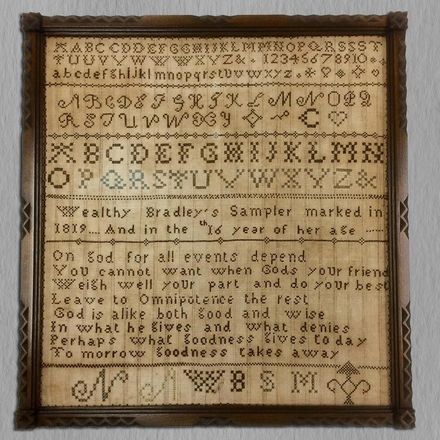 ABCCDDEFGGHIJKLMNOPQRSST
TUUVVWWXYYZ& . 1234567891O
abcdefghijklmnopqrstuvwxyz
ABCDEFGHIJKLMNOPQ
RSTUVWXY C
ABCDEFGHIJKLMN
OPQRSTUVWXYZ&
Wealthy Bradley's Sampler marked in
1819... And in the 16th year of her age
On God for all events depend
You cannot want when Gods your friend
Weigh well your part and do your best
Leave to Omnipotence the rest
God is alike both Good and wise
In what he Gives and what denies
Perhaps what Goodness Gives to day
To morrow Goodness takes away
N A W B S M